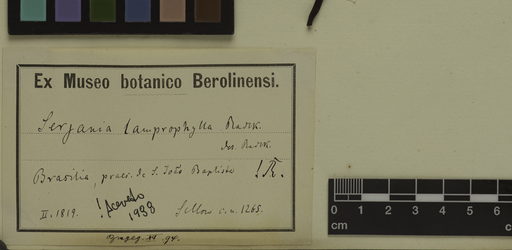 Ex Museo botanico Berolinensi.
Serjania lamprophylla Radlk.
det. Radlk.
Brasilia, praec. de S. João Baptista !R.
II. 1819. !Acevedo 1988 Sellow c. n. 1265.
0 1 2 3 4 5 6
cm